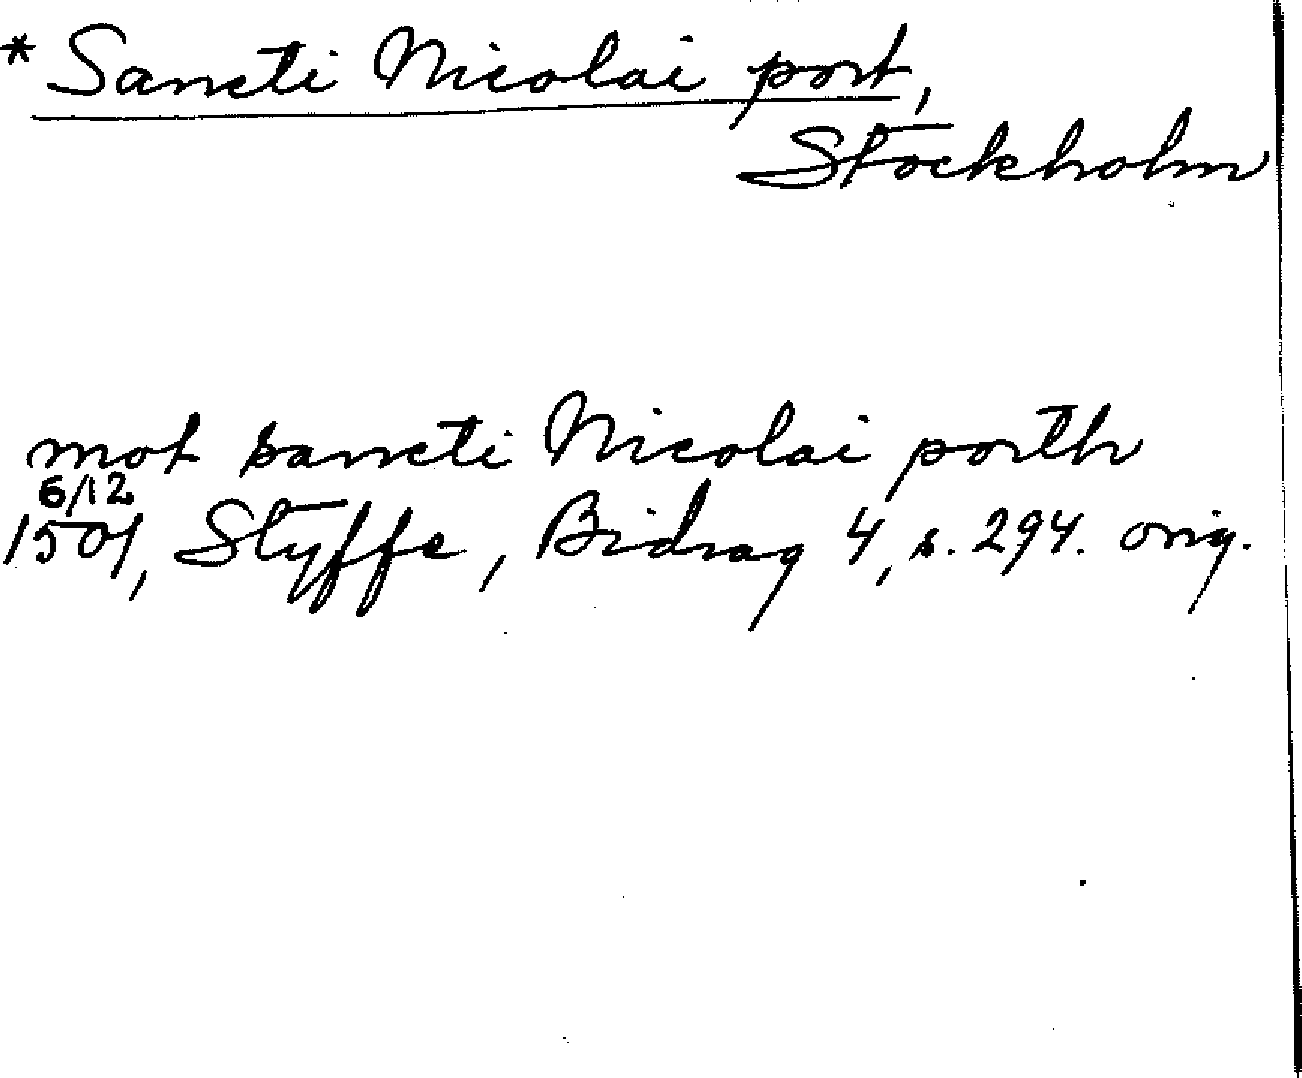 *Sancti Nicolai port,
Stockholm
mot sancti Nicolai porth
6/12
1501, Styffe, Bidrag 4, s. 294. orig.